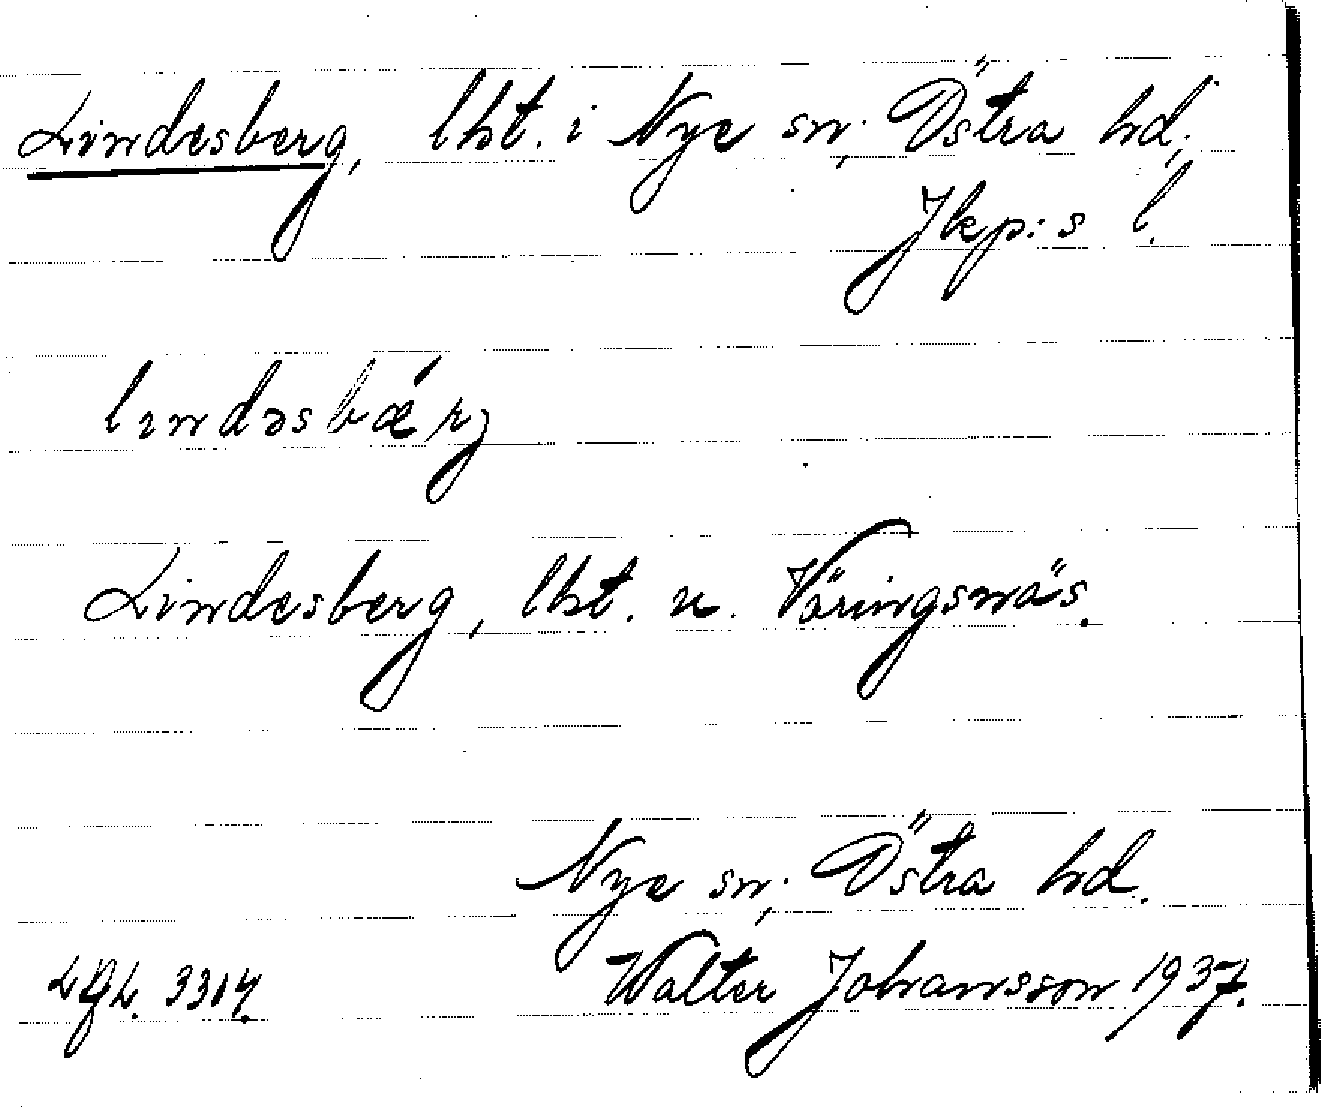 Lindesberg, lht. i Nye sn, Östra hd,
Jkp:s l.
lındəsbærj
Lindesberg, lht. u. Väringsnäs.
Nye sn, Östra hd.
LGL. 3314. Walter Johansson 1937.